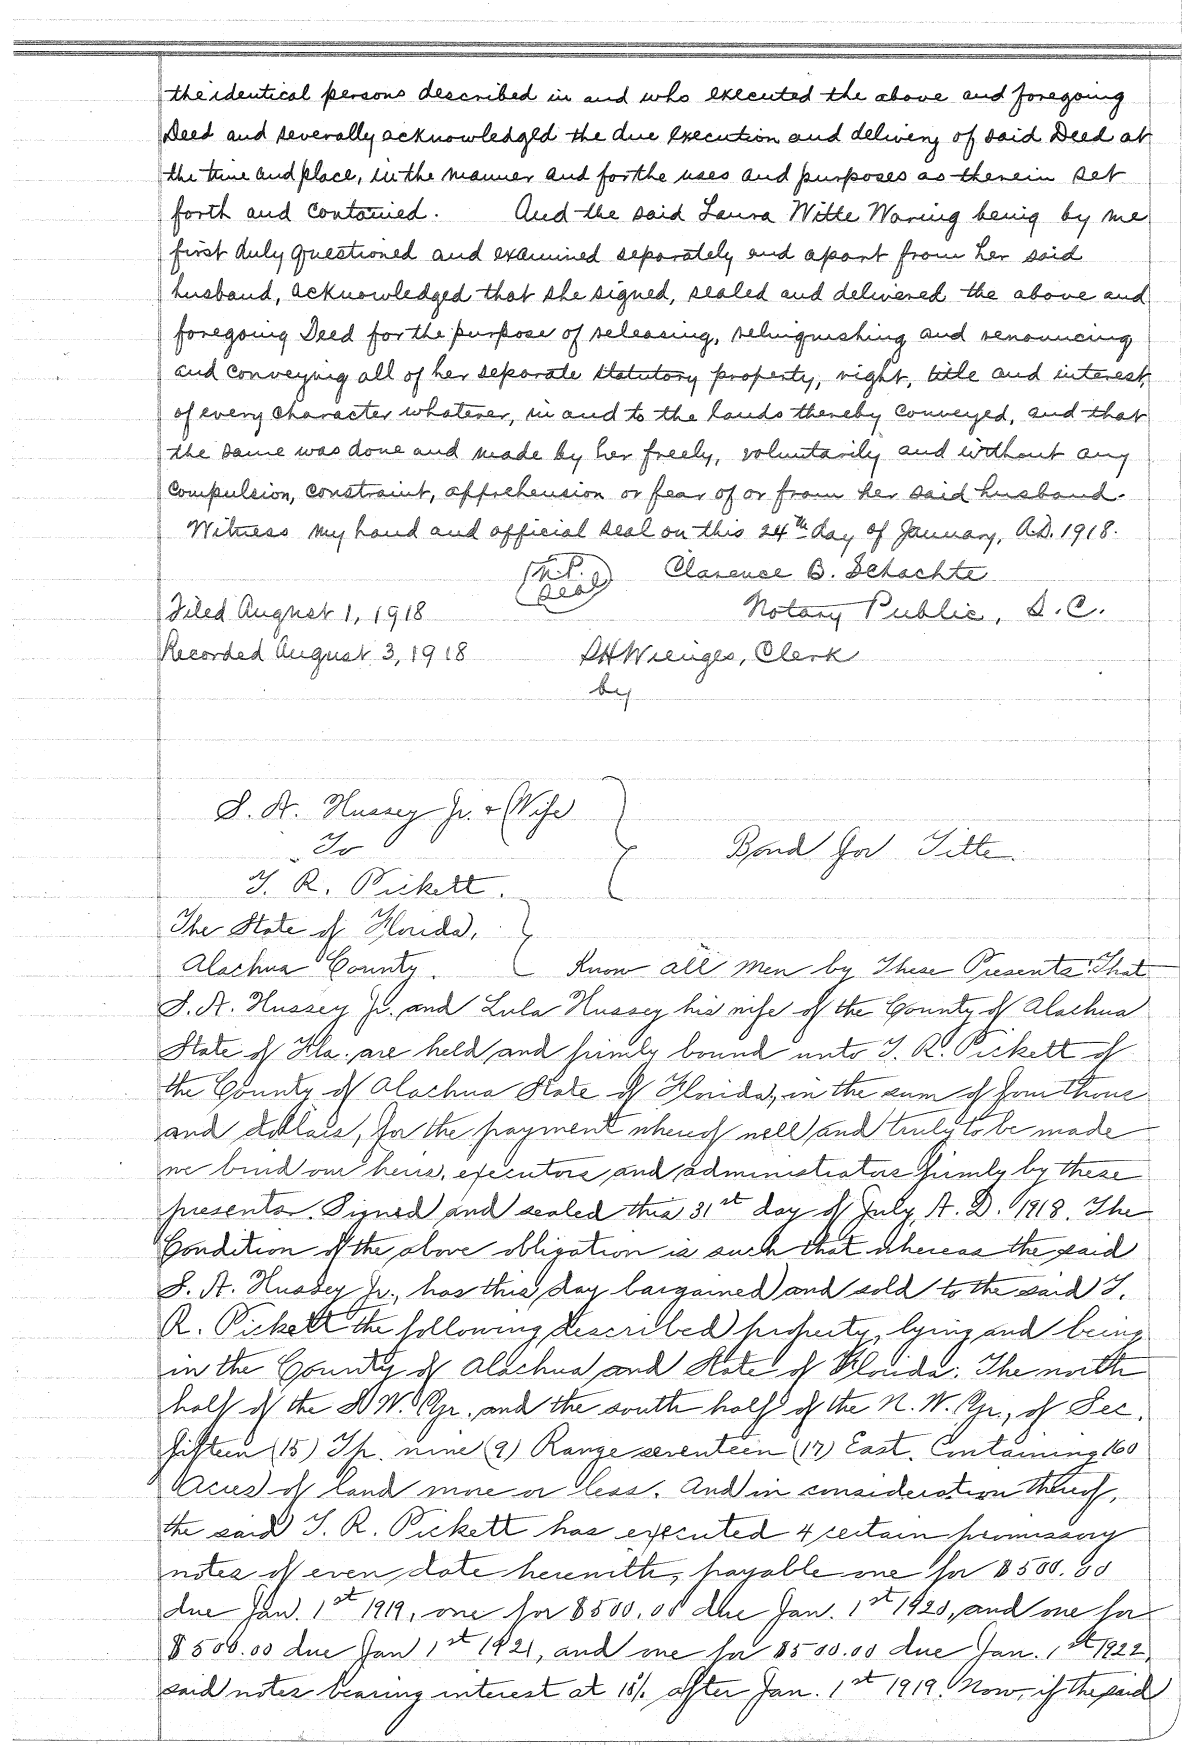 the identical persons described in and who executed the above and foregoing
Deed and severally acknowledged the due execution and delivery of said Deed at
the time and place, in the manner and for the uses and purposes as therein set
forth and contained. And the said Laura Witte Waring being by me
first duly questioned and examined separately and apart from her said
husband, acknowledged that she signed, sealed and delivered the above and
foregoing Deed for the purpose of releasing, relinquishing and renouncing
and conveying all of her separate statutory property, right, title and interest,
of every character whatever, in and to the lands thereby conveyed, and that
the same was done and made by her freely, voluntarily and without any
compulsion, constraint, apprehension or fear of or from her said husband.
Witness my hand and official seal on this 24th day of January, A.D. 1918.
(N.P. Seal) Clarence B. Schachte
Filed August 1, 1918 Notary Public, S.C.
Recorded August 3, 1918 SHWienges, Clerk
by
S. A. Hussey Jr. & Wife
To Bond for Title.
T. R. Pickett.
The State of Florida,
Alachua County. Know all Men by These Presents: That
S. A. Hussey Jr. and Lula Hussey his wife of the County of Alachua
State of Fla. are held and firmly bound unto T. R. Pickett of
the County of Alachua State of Florida, in the sum of four thous
and dollars, for the payment whereof well and truly to be made
we bind our heirs, executors and administrators firmly by these
presents. Signed and sealed this 31st day of July, A. D. 1918. The
Condition of the above obligation is such that whereas the said
S. A. Hussey Jr., has this day bargained and sold to the said T.
R. Pickett the following described property, lying and being
in the County of Alachua and State of Florida: The north
half of the S W. Qr. and the south half of the N. W. Qr., of Sec.
fifteen (15) Tp. nine (9) Range seventeen (17) East. Containing 160
Acres of land more or less. And in consideration thereof,
the said T. R. Pickett has executed 4 certain promissory
notes of even date herewith, payable one for $500.00
due Jan. 1st 1919, one for $500.00 due Jan. 1st 1920, and one for
$500.00 due Jan 1st 1921, and one for $500.00 due Jan. 1st 1922,
said notes bearing interest at 10% after Jan. 1st 1919. Now, if the said